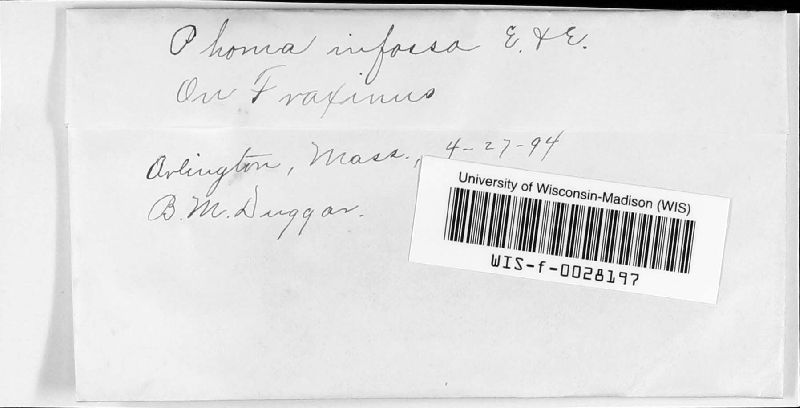 Phoma infossa E. & E.
On Fraxinus
Arlington, Mass., 4-27-94
B. M. Duggar.
University of Wisconsin-Madison (WIS)
WIS-f-0028197